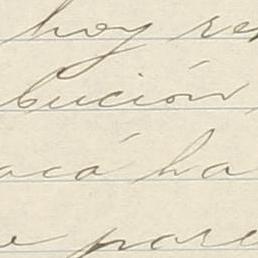 hoy re
bución
acá ha
pare